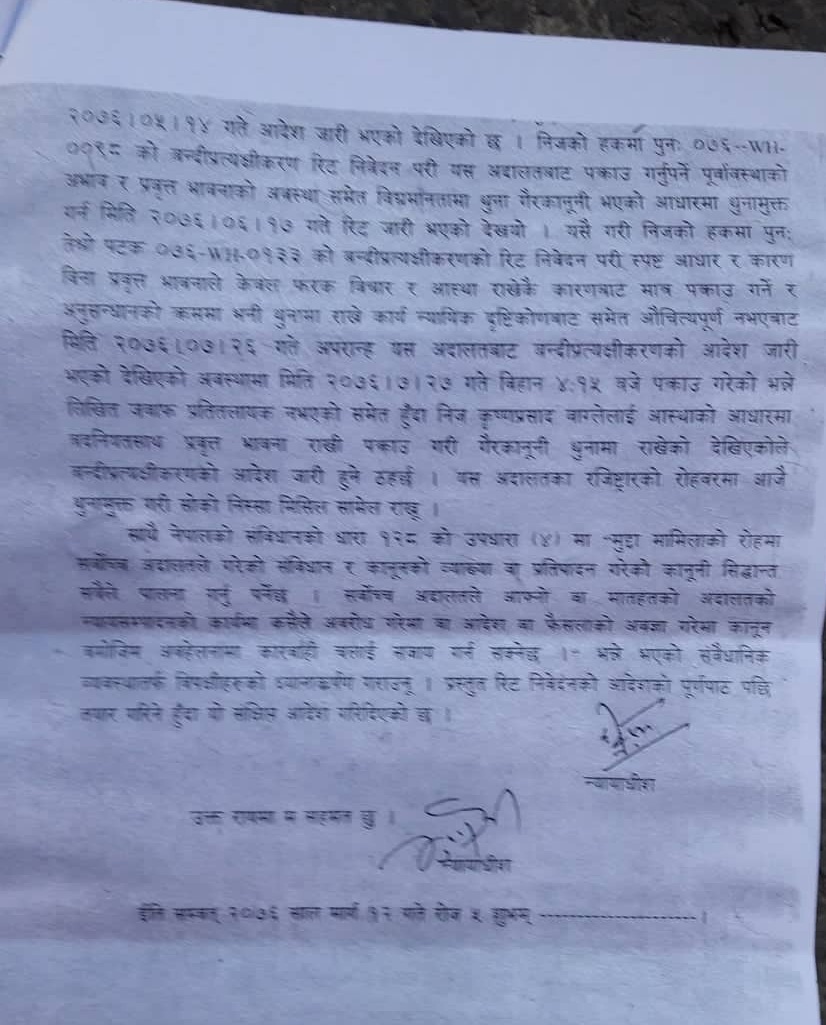 २०७६।०५।१४ गते आदेश जारी भएको देखिएको छ । निजको हकमा पुनः ०७६--WH-
००९८ को बन्दीप्रत्यक्षीकरण रिट निवेदन परी यस अदालतबाट पक्राउ गर्नुपर्ने पूर्वावस्थाको
अभाव र प्रवृत्त भावनाको अवस्था समेत विद्यमानतामा थुना गैरकानूनी भएको आधारमा थुनामुक्त
गर्न मिति २०७६।०६।१७ गते रिट जारी भएको देखियो । यसै गरी निजको हकमा पुनः
तेश्रो पटक ०७६-WH-०१३३ को बन्दीप्रत्यक्षीकरणको रिट निवेदन परी स्पष्ट आधार र कारण
विना प्रवृत्त भावनाले केवल फरक विचार र आस्था राखेकै कारणबाट मात्र पक्राउ गर्ने र
अनुसन्धानको क्रममा भनी थुनामा राख्ने कार्य न्यायिक दृष्टिकोणबाट समेत औचित्यपूर्ण नभएबाट
मिति २०७६।०७।२६ गते अपरान्ह यस अदालतबाट बन्दीप्रत्यक्षीकरणको आदेश जारी
भएको देखिएको अवस्थामा मिति २०७६।७।२७ गते विहान ४:१५ वजे पक्राउ गरेको भन्ने
लिखित जवाफ प्रतितलायक नभएको समेत हुँदा निज कृष्णप्रसाद वाग्लेलाई आस्थाको आधारमा
वदनियतसाथ प्रवृत्त भावना राखी पक्राउ गरी गैरकानूनी थुनामा राखेको देखिएकोले
बन्दीप्रत्यक्षीकरणको आदेश जारी हुने ठहर्छ । यस अदालतका रजिष्ट्रारको रोहवरमा आजै
थुनामुक्त गरी सोको निस्सा मिसिल सामेल राख्नू ।
साथै नेपालको संविधानको धारा १२८ को उपधारा (४) मा "मुद्दा मामिलाको रोहमा
सर्वोच्च अदालतले गरेको संविधान र कानूनको व्याख्या वा प्रतिपादन गरेको कानूनी सिद्धान्त
सबैले पालना गर्नु पर्नेछ । सर्वोच्च अदालतले आफ्नो वा मातहतको अदालतको
न्यायसम्पादनको कार्यमा कसैले अवरोध गरेमा वा आदेश वा फैसलाको अवज्ञा गरेमा कानून
बमोजिम अवहेलनामा कारवाही चलाई सजाय गर्न सक्नेछ ।" भन्ने भएको संवैधानिक
व्यवस्थातर्फ विपक्षीहरुको ध्यानाकर्षण गराउनू । प्रस्तुत रिट निवेदनको आदेशको पूर्णपाठ पछि
तयार गरिने हुँदा यो संक्षिप्त आदेश गरिदिएको छ ।
न्यायाधीश
उक्त रायमा म सहमत छु ।
न्यायाधीश
ईति सम्वत् २०७६ साल मार्ग १२ गते रोज ५ शुभम् ----------------------।